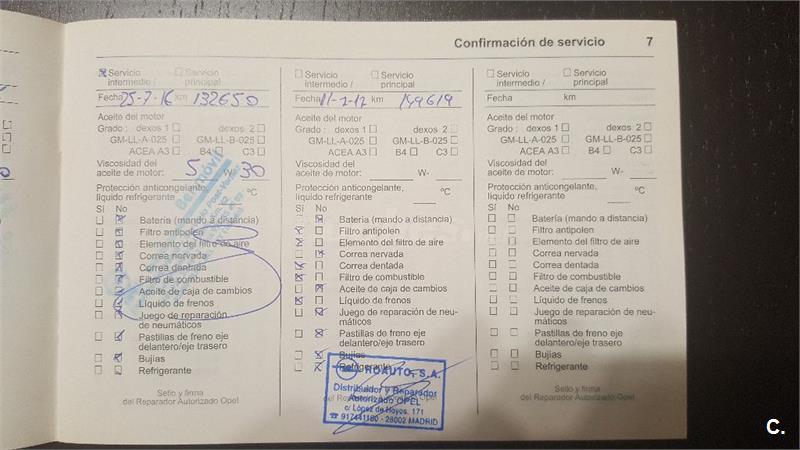 Confirmación de servicio 7
Servicio intermedio /
Servicio principal
Fecha 25-7-16 km 132650
Aceite del motor
Grado : dexos 1 dexos 2
GM-LL-A-025 GM-LL-B-025
ACEA A3 B4 C3
Viscosidad del
aceite de motor: 5 W- 30
Protección anticongelante,
líquido refrigerante °C
Sí No
Batería (mando a distancia)
Filtro antipolen
Elemento del filtro de aire
Correa nervada
Correa dentada
Filtro de combustible
Aceite de caja de cambios
Líquido de frenos
Juego de reparación
de neumáticos
Pastillas de freno eje
delantero/eje trasero
Bujías
Refrigerante
Sello y firma
del Reparador Autorizado Opel
Servicio intermedio /
Servicio principal
Fecha km 149619
Aceite del motor
Grado : dexos 1 dexos 2
GM-LL-A-025 GM-LL-B-025
ACEA A3 B4 C3
Viscosidad del
aceite de motor: W-
Protección anticongelante,
líquido refrigerante °C
Sí No
Batería (mando a distancia)
Filtro antipolen
Elemento del filtro de aire
Correa nervada
Correa dentada
Filtro de combustible
Aceite de caja de cambios
Líquido de frenos
Juego de reparación de neu-
máticos
Pastillas de freno eje
delantero/eje trasero
Bujías
Refrigerante
ROAUTO, S.A.
Distribuidor y Reparador
Autorizado OPEL
c/ López de Hoyos, 171
☎ 917441180 - 28002 MADRID
Servicio intermedio /
Servicio principal
Fecha km
Aceite del motor
Grado : dexos 1 dexos 2
GM-LL-A-025 GM-LL-B-025
ACEA A3 B4 C3
Viscosidad del
aceite de motor: W-
Protección anticongelante,
líquido refrigerante °C
Sí No
Batería (mando a distancia)
Filtro antipolen
Elemento del filtro de aire
Correa nervada
Correa dentada
Filtro de combustible
Aceite de caja de cambios
Líquido de frenos
Juego de reparación de neu-
máticos
Pastillas de freno eje
delantero/eje trasero
Bujías
Refrigerante
Sello y firma
del Reparador Autorizado Opel
C.